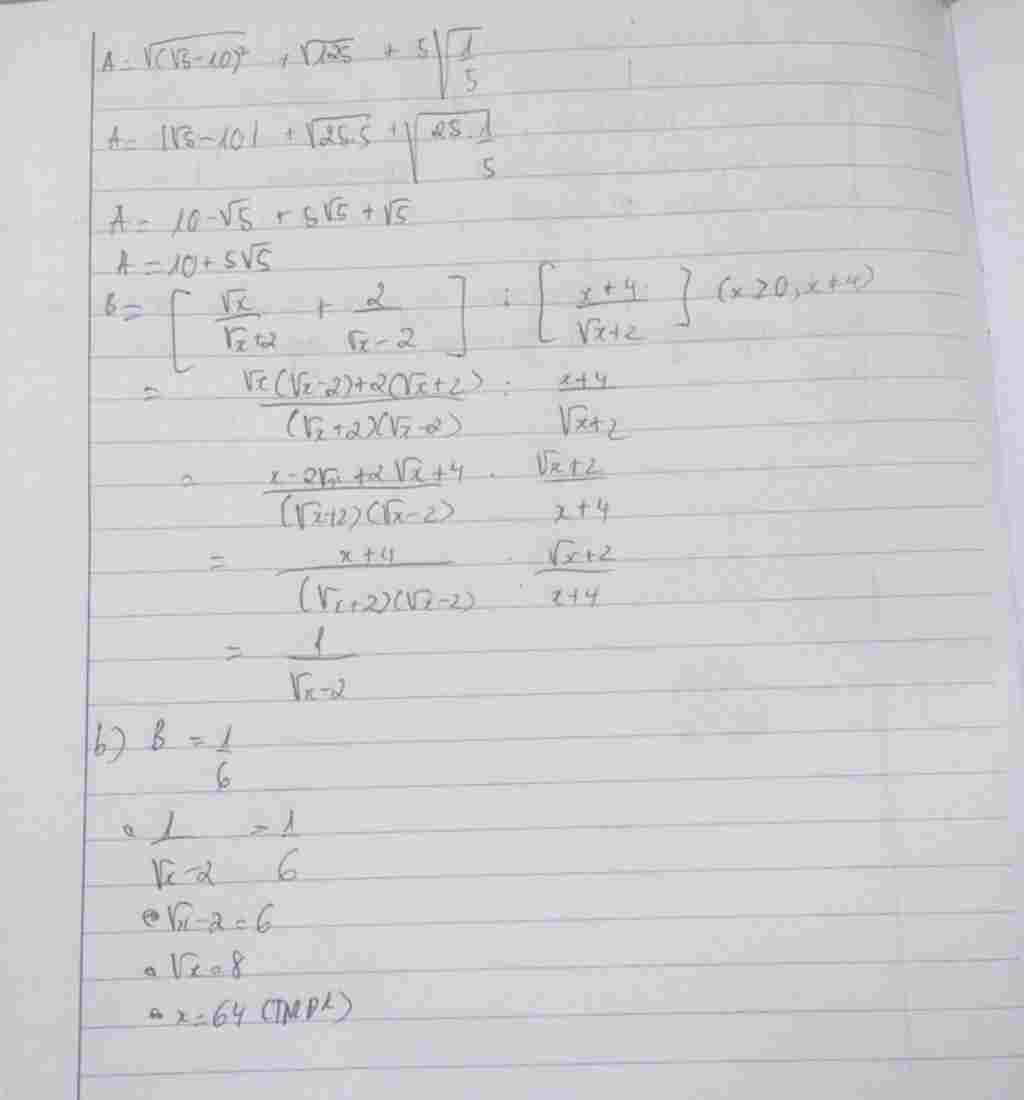 A = √(√5-10)² + √125 + 5√1/5
A = |√5-10| + √25.5 + √25.1/5
A = 10-√5 + 5√5 + √5
A = 10 + 5√5
B = [√x/√x+2 + 2/√x-2] : [x+4/√x+2] (x≥0, x≠4)
= √x(√x-2)+2(√x+2)/(√x+2)(√x-2) : x+4/√x+2
= x-2√x+2√x+4/(√x+2)(√x-2) . √x+2/x+4
= x+4/(√x+2)(√x-2) . √x+2/x+4
= 1/√x-2
b) B = 1/6
⇔ 1/√x-2 = 1/6
⇔ √x-2 = 6
⇔ √x = 8
⇔ x = 64 (TMĐK)